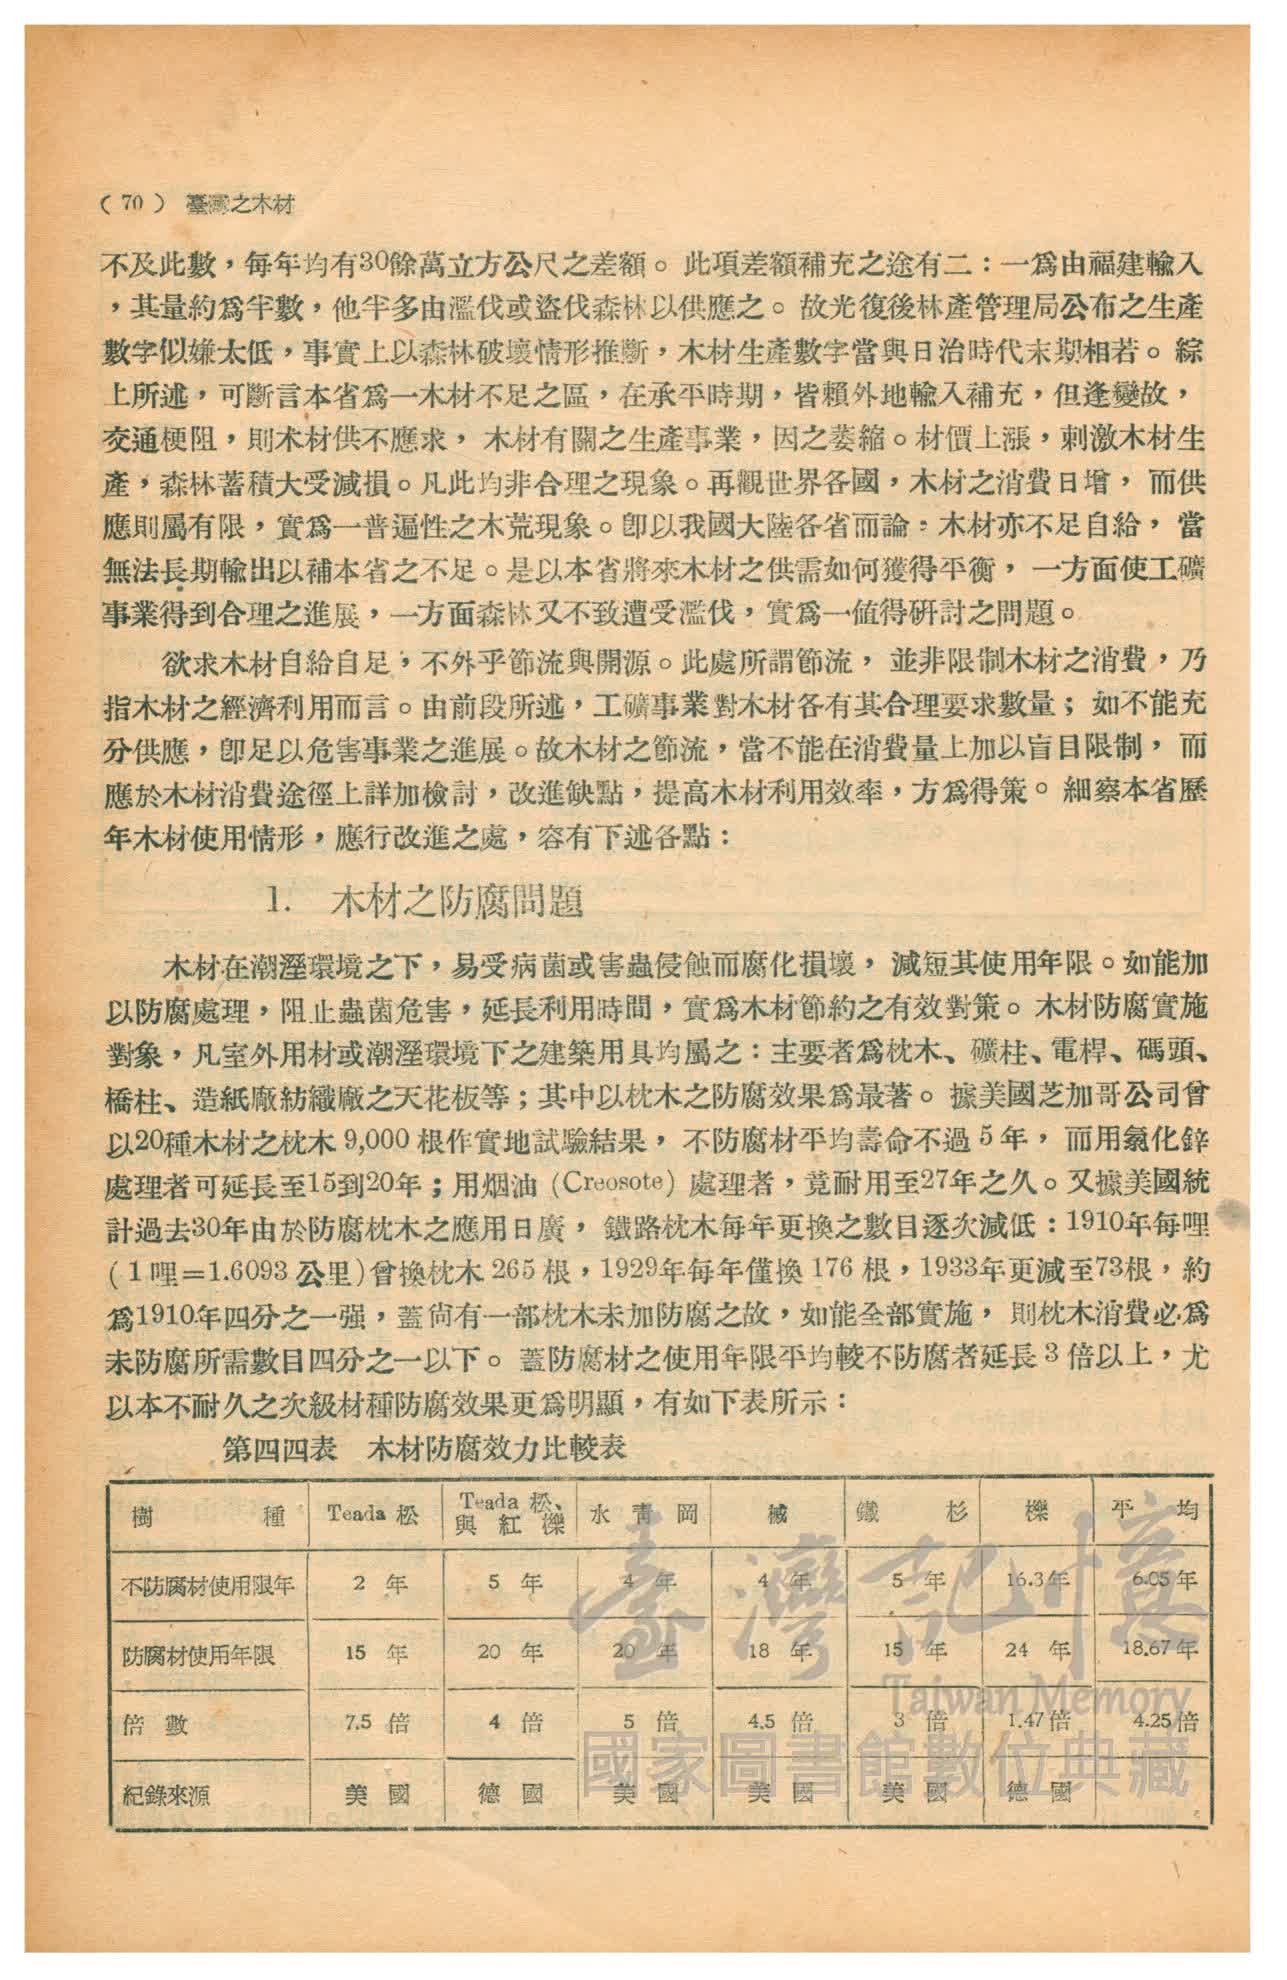 ( 70 ) 臺灣之木材
不及此數，每年均有30餘萬立方公尺之差額。此項差額補充之途有二：一爲由福建輸入
，其量約爲半數，他半多由濫伐或盜伐森林以供應之。故光復後林產管理局公布之生產
數字似嫌太低，事實上以森林破壞情形推斷，木材生產數字當與日治時代末期相若。綜
上所述，可斷言本省爲一木材不足之區，在承平時期，皆賴外地輸入補充，但逢變故，
交通梗阻，則木材供不應求，木材有關之生產事業，因之萎縮。材價上漲，刺激木材生
產，森林蓄積大受減損。凡此均非合理之現象。再觀世界各國，木材之消費日增，而供
應則屬有限，實爲一普遍性之木荒現象。卽以我國大陸各省而論：木材亦不足自給，當
無法長期輸出以補本省之不足。是以本省將來木材之供需如何獲得平衡，一方面使工礦
事業得到合理之進展，一方面森林又不致遭受濫伐，實爲一値得研討之問題。
欲求木材自給自足，不外乎節流與開源。此處所謂節流，並非限制木材之消費，乃
指木材之經濟利用而言。由前段所述，工礦事業對木材各有其合理要求數量；如不能充
分供應，卽足以危害事業之進展。故木材之節流，當不能在消費量上加以盲目限制，而
應於木材消費途徑上詳加檢討，改進缺點，提高木材利用效率，方爲得策。細察本省歷
年木材使用情形，應行改進之處，容有下述各點：
1. 木材之防腐問題
木材在潮溼環境之下，易受病菌或害蟲侵蝕而腐化損壞，減短其使用年限。如能加
以防腐處理，阻止蟲菌危害，延長利用時間，實爲木材節約之有效對策。木材防腐實施
對象，凡室外用材或潮溼環境下之建築用具均屬之：主要者爲枕木、礦柱、電桿、碼頭、
橋柱、造紙廠紡織廠之天花板等；其中以枕木之防腐效果爲最著。據美國芝加哥公司曾
以20種木材之枕木 9,000 根作實地試驗結果，不防腐材平均壽命不過 5 年，而用氯化鋅
處理者可延長至15到20年；用烟油 (Creosote) 處理者，竟耐用至27年之久。又據美國統
計過去30年由於防腐枕木之應用日廣，鐵路枕木每年更換之數目逐次減低：1910年每哩
(1哩＝1.6093 公里)曾換枕木 265 根，1929年每年僅換 176 根，1933年更減至73根，約
爲1910年四分之一强，蓋尙有一部枕木未加防腐之故，如能全部實施，則枕木消費必爲
未防腐所需數目四分之一以下。蓋防腐材之使用年限平均較不防腐者延長 3 倍以上，尤
以本不耐久之次級材種防腐效果更爲明顯，有如下表所示：
第四四表 木材防腐效力比較表
樹種 Teada 松 Teada 松、與紅櫟 水青岡 槭 鐵杉 櫟 平均
不防腐材使用限年 2 年 5 年 4 年 4 年 5 年 16.3年 6.05年
防腐材使用年限 15 年 20 年 20 年 18 年 15 年 24 年 18.67年
倍數 7.5 倍 4 倍 5 倍 4.5 倍 3 倍 1.47倍 4.25倍
紀錄來源 美國 德國 美國 美國 美國 德國
臺灣記憶
Taiwan Memory
國家圖書館數位典藏